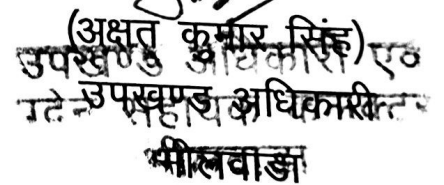 (अक्षत कुमार सिंह)
उपखण्ड अधिकारी ए०
उपखण्ड अधिकारी
भीलवाडा